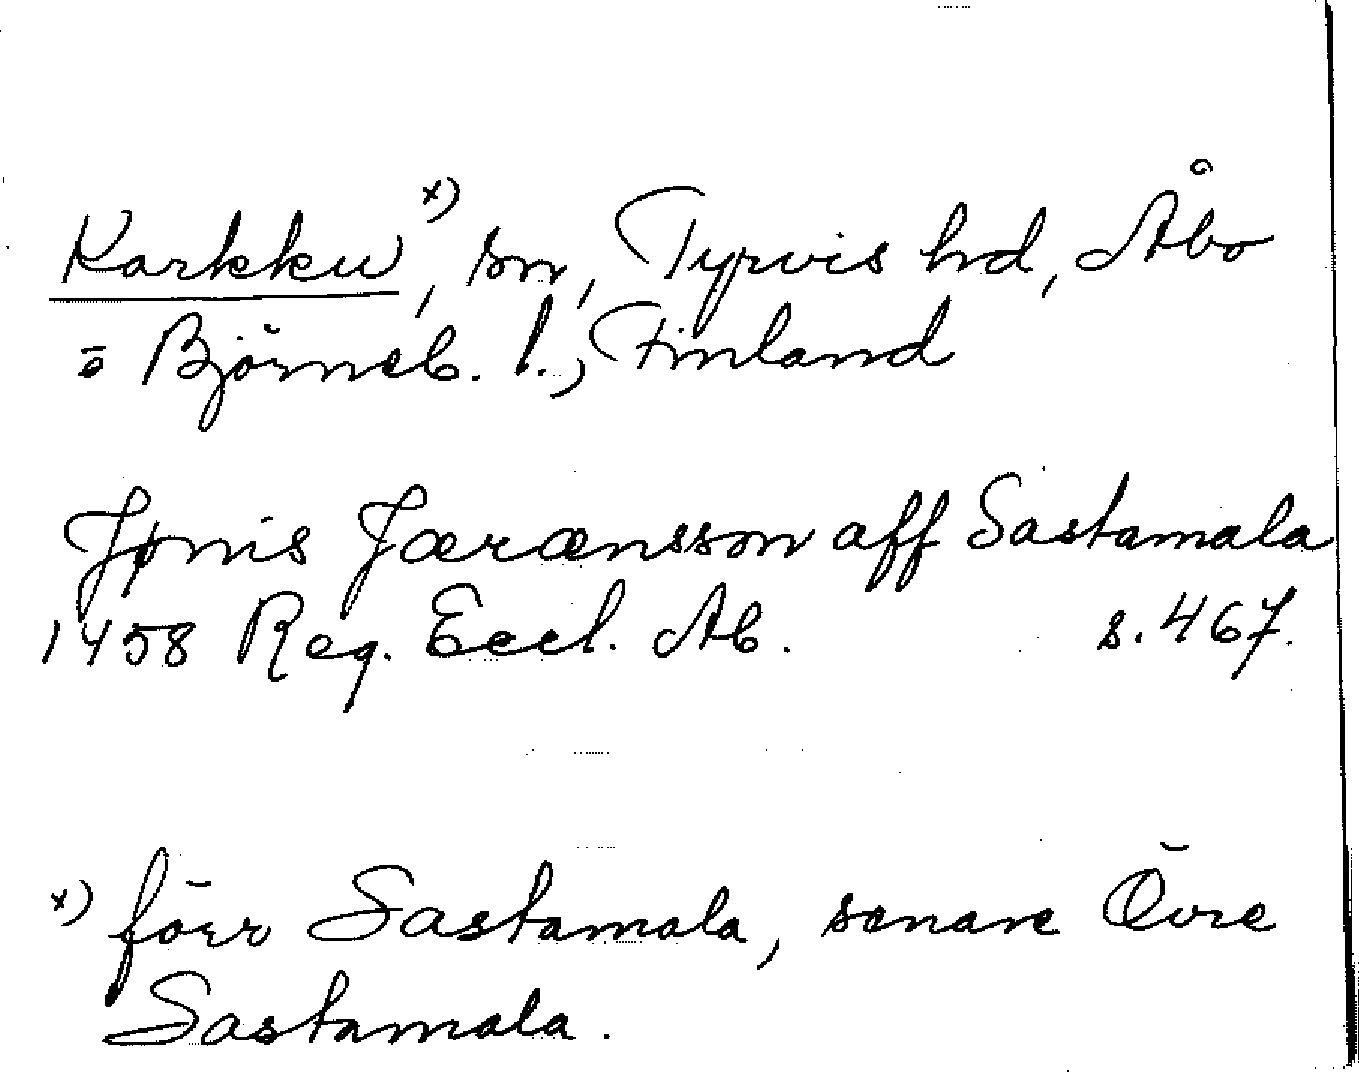 Karkku x), sn, Tyrvis hd, Åbo
o Björneb. l., Finland
Jønis Jæränsson aff Sastamala
1458 Reg. Eccl. Ab. s. 467.
x) förr Sastamala, senare Övre
Sastamala.